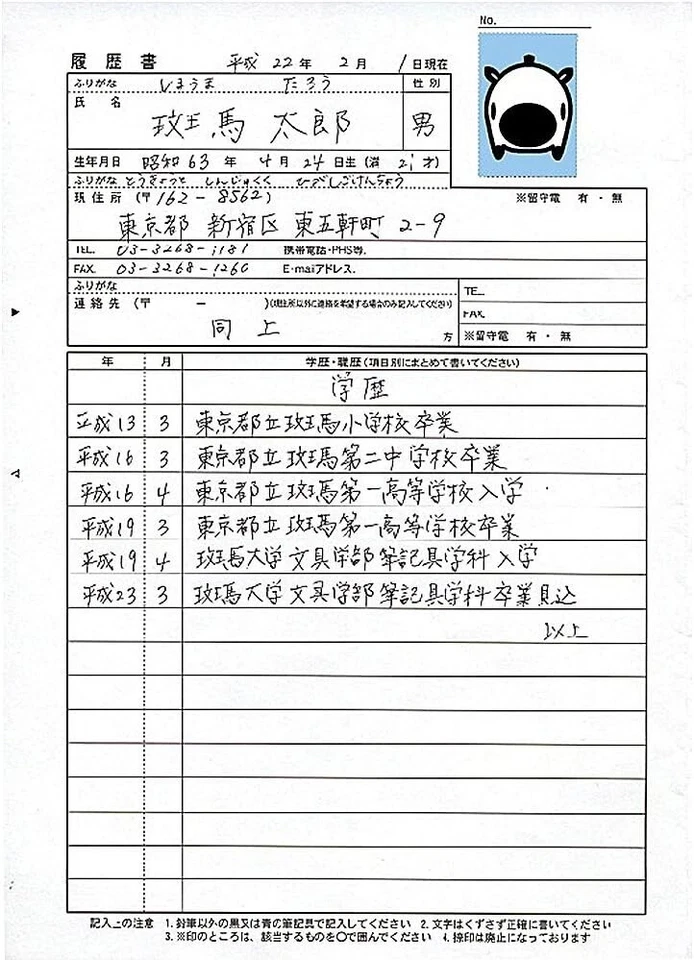 No.
履歴書 平成 22年 2月 1日現在
ふりがな しまうま たろう 性別
氏名 斑馬 太郎 男
生年月日 昭和63年 4月 24日生 (満 21才)
ふりがな とうきょうと しんじゅくく ひがしごけんちょう
現住所 (〒162-8562) ※留守電 有・無
東京都 新宿区 東五軒町 2-9
TEL. 03-3268-1181 携帯電話・PHS等.
FAX. 03-3268-1260 E・mailアドレス.
ふりがな TEL
連絡先 (〒 - )(現住所以外に連絡を希望する場合のみ記入してください) FAX
同上 方 ※留守電 有・無
年 月 学歴・職歴(項目別にまとめて書いてください)
学歴
平成13 3 東京都立斑馬小学校卒業
平成16 3 東京都立斑馬第二中学校卒業
平成16 4 東京都立斑馬第一高等学校入学
平成19 3 東京都立斑馬第一高等学校卒業
平成19 4 斑馬大学文具学部筆記具学科入学
平成23 3 斑馬大学文具学部筆記具学科卒業見込
以上
記入上の注意 1.鉛筆以外の黒又は青の筆記具で記入してください 2.文字はくずさず正確に書いてください
3.※印のところは、該当するものを○で囲んでください 4.捺印は廃止になっております